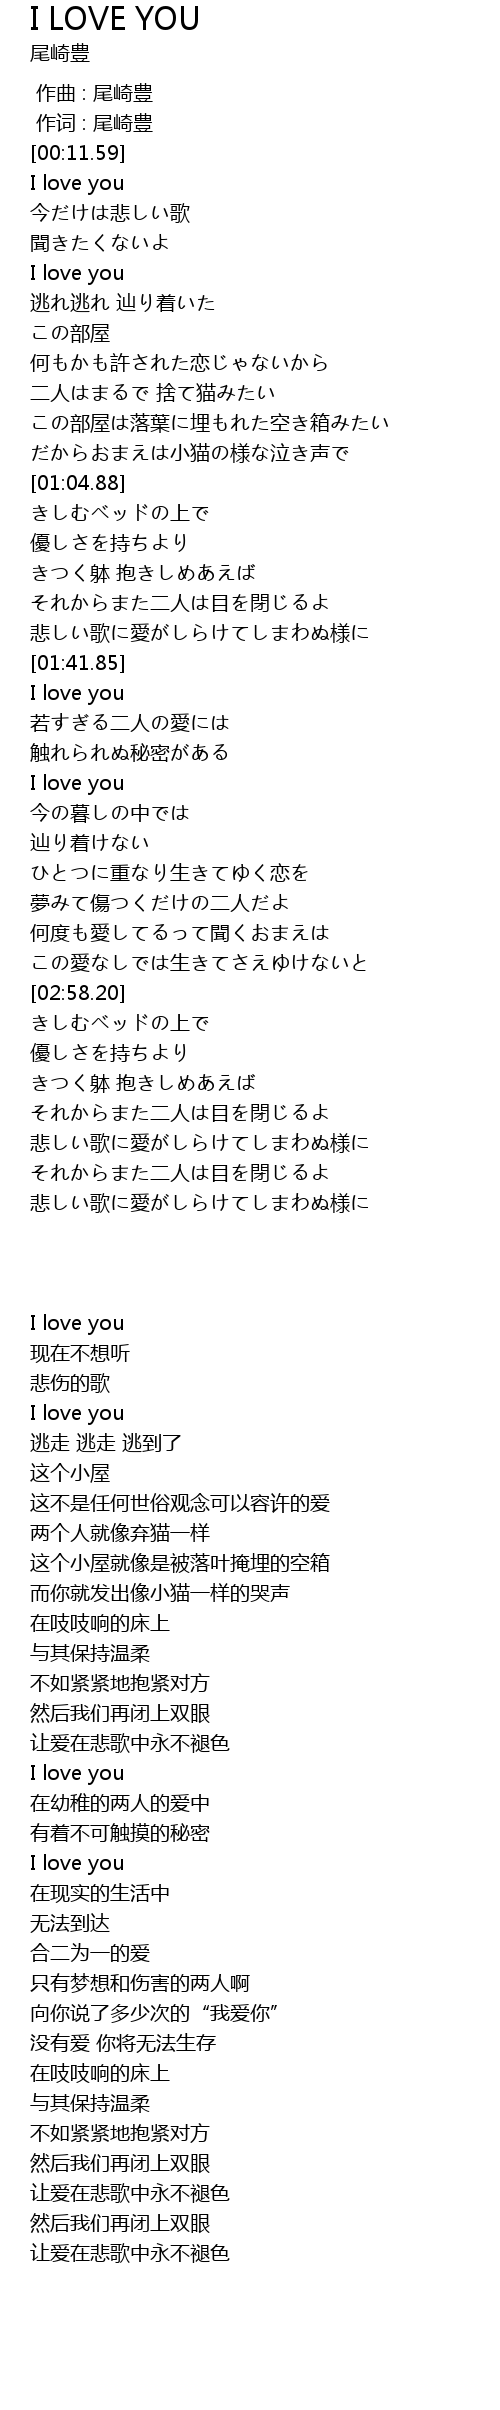 I LOVE YOU
尾崎豊
作曲 : 尾崎豊
作词 : 尾崎豊
[00:11.59]
I love you
今だけは悲しい歌
聞きたくないよ
I love you
逃れ逃れ 辿り着いた
この部屋
何もかも許された恋じゃないから
二人はまるで 捨て猫みたい
この部屋は落葉に埋もれた空き箱みたい
だからおまえは小猫の様な泣き声で
[01:04.88]
きしむベッドの上で
優しさを持ちより
きつく躰 抱きしめあえば
それからまた二人は目を閉じるよ
悲しい歌に愛がしらけてしまわぬ様に
[01:41.85]
I love you
若すぎる二人の愛には
触れられぬ秘密がある
I love you
今の暮しの中では
辿り着けない
ひとつに重なり生きてゆく恋を
夢みて傷つくだけの二人だよ
何度も愛してるって聞くおまえは
この愛なしでは生きてさえゆけないと
[02:58.20]
きしむベッドの上で
優しさを持ちより
きつく躰 抱きしめあえば
それからまた二人は目を閉じるよ
悲しい歌に愛がしらけてしまわぬ様に
それからまた二人は目を閉じるよ
悲しい歌に愛がしらけてしまわぬ様に
I love you
现在不想听
悲伤的歌
I love you
逃走 逃走 逃到了
这个小屋
这不是任何世俗观念可以容许的爱
两个人就像弃猫一样
这个小屋就像是被落叶掩埋的空箱
而你就发出像小猫一样的哭声
在吱吱响的床上
与其保持温柔
不如紧紧地抱紧对方
然后我们再闭上双眼
让爱在悲歌中永不褪色
I love you
在幼稚的两人的爱中
有着不可触摸的秘密
I love you
在现实的生活中
无法到达
合二为一的爱
只有梦想和伤害的两人啊
向你说了多少次的“我爱你”
没有爱 你将无法生存
在吱吱响的床上
与其保持温柔
不如紧紧地抱紧对方
然后我们再闭上双眼
让爱在悲歌中永不褪色
然后我们再闭上双眼
让爱在悲歌中永不褪色